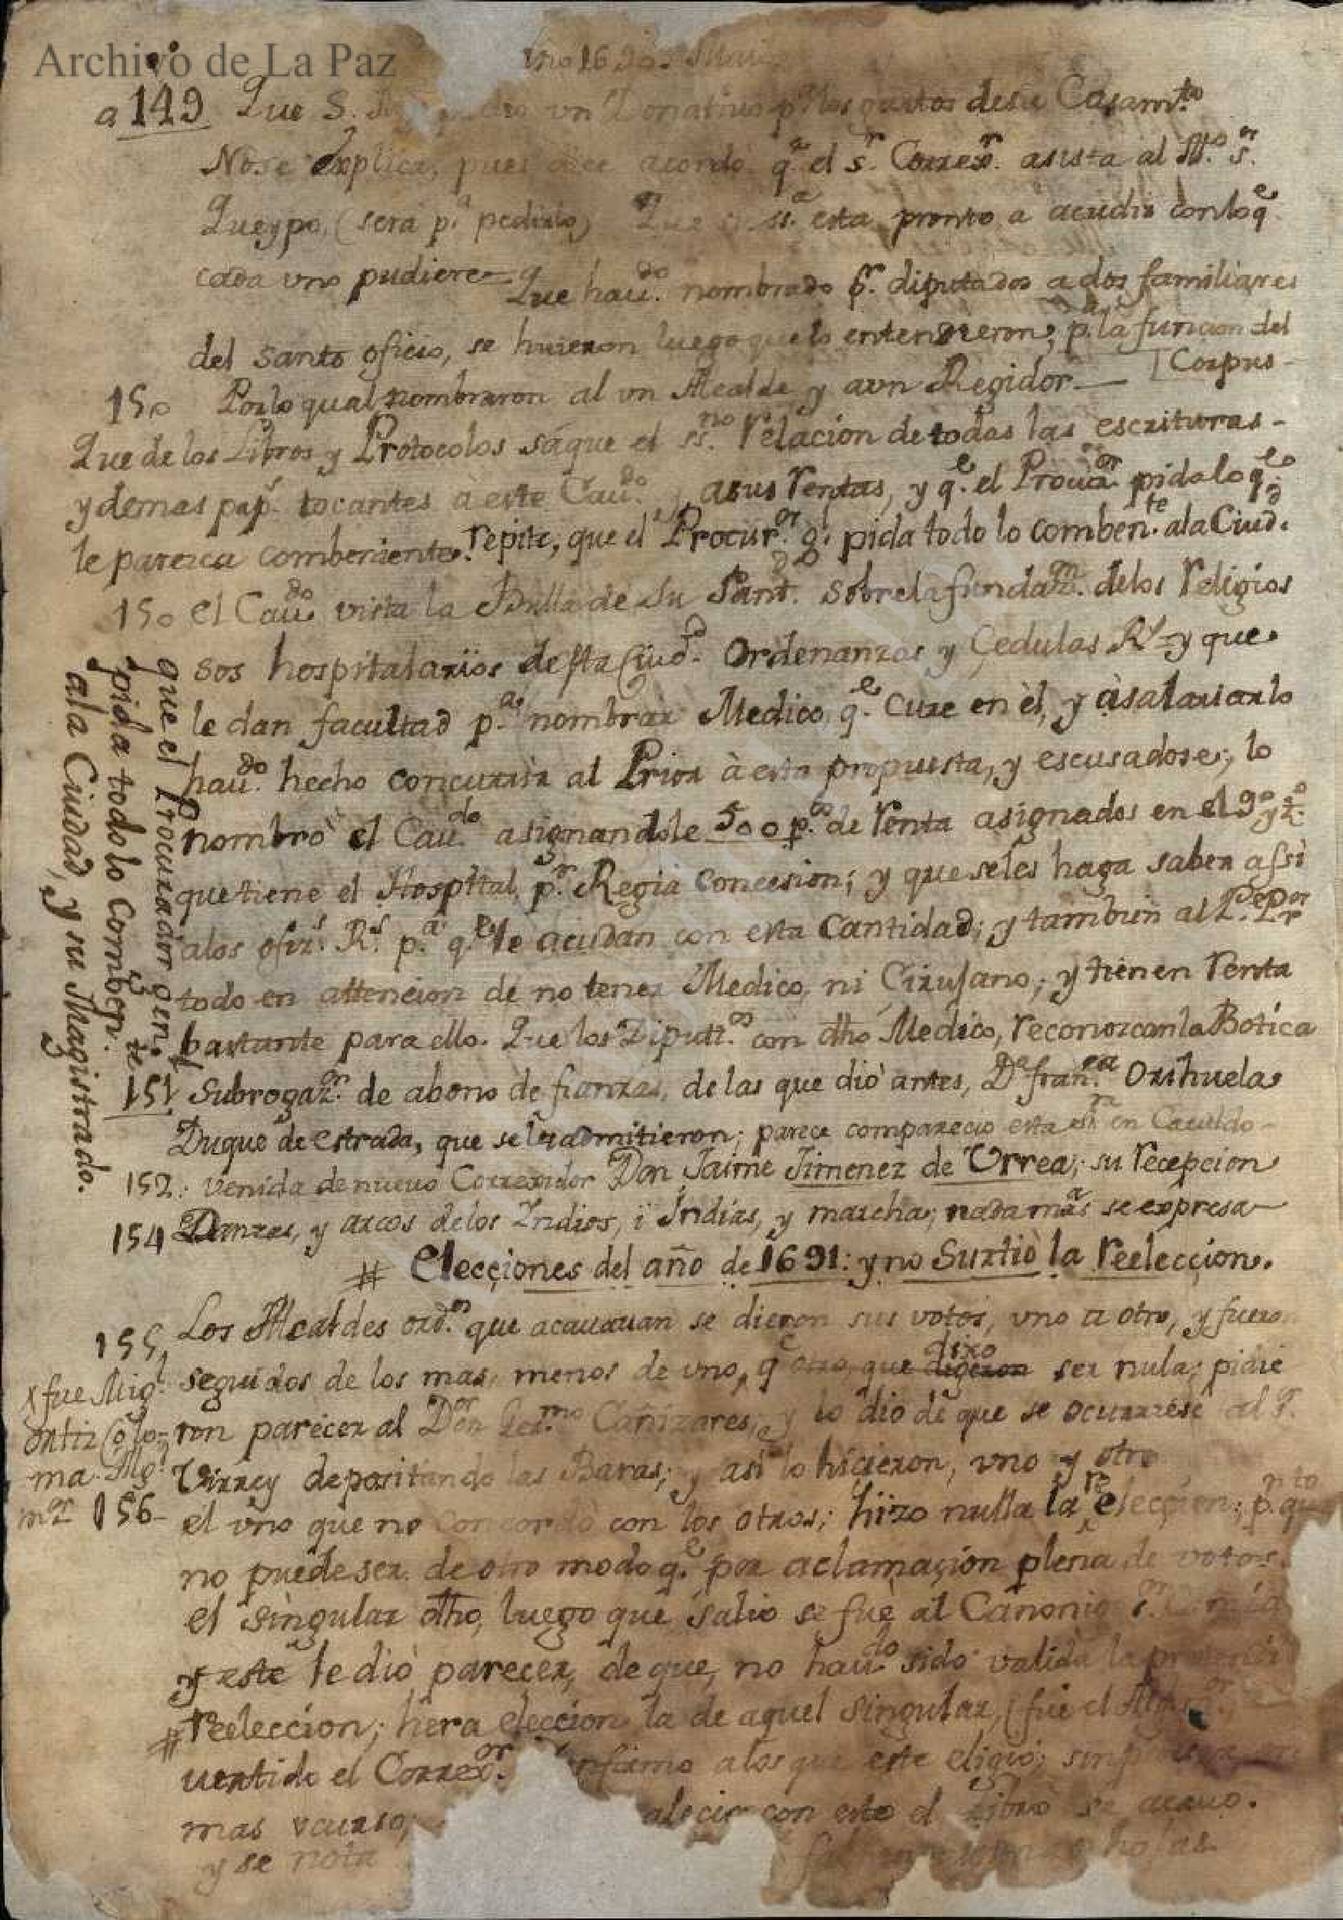 Archivo de La Paz
a 149 Que S. un Donativo p.ª los gastos de su Casam.to
No se explica, pues dice acordó q.e el s.r Correx.r asista al s.r
Queypo, (será p.ª pedirlo) Que s.ª esta pronto a acudir con lo q.e
cada uno pudiere Que hau.do nombrado p.r diputados a dos familiares
del santo oficio, se huieron luego que lo entendieron, p.ª la funcion del
Corpus
150 Por lo qual nombraron al un Alcalde y a un Regidor
Que de los Libros y Protocolos saque el es.no relacion de todas las escrituras
y demas pap.s tocantes à este Cau.do y a sus rentas, y q.e el Procur.or pida lo q.e
le paresca combeniente. repite, que el Procur.or g.l pida todo lo comben.te a la Ciud.d
150 el Cau.do vista la Bulla de Su Sant.d sobre la fundaz.on de los religio
sos hospitalarios desta Ciud.d Ordenanzas y Çedulas R.s y que
le dan facultad p.ª nombrar Medico q.e cure en èl, y àsalariarlo
hau.do hecho concurrir al Prior à esta propuesta, y escusadose; lo
nombrò el Cau.do asignandole 500 p.os de renta asignados en el 9.º y 1/2.º
que tiene el Hospital p.r Regia Concesion; y que seles haga saber assi
a los ofiz.s R.s p.ª q.e le acudan con esta Cantidad; y tambien al P.e P.or
todo en attencion de no tener Medico, ni Cirujano; y tienen renta
bastante para ello. Que los Diput.os con dho Medico, reconozcan la Botica
151 Subrogaz.on de abono de fianzas, de las que diò antes, D.ª fran.ca Orihuela
Duque de estrada, que se le admitieron; parece comparecio esta s.ra en Cauildo
152: Venida de nuevo Correxidor Don Jaime Jimenez de Urrea; su recepcion
154 Danzas, y arcos de los Indios, i Indias, y marcha; nada mas se expresa
# Elecçiones del año de 1691: y no Surtiò la reelecçion.
155 Los Alcaldes ord.os que acauauan se dieron sus votos, uno a otro, y fueron
seguidos de los mas, menos de uno, q.e que digeron dixo ser nula; pidie
ron parecer al D.or Ger.mo Cañizares, y lo dio de que se ocurriese al
Virrey depositando las Baras; y asi lo hicieron, uno y otro
156 el uno que no concordò con los otros; hizo nulla la reelecçion; p.r q.to
no puede ser de otro modo q.e por aclamaçion plena de votos
el singular dho, luego que salio se fue al Canonigo
y este le diò parecer, de que, no hau.do sido valida la
# reeleccion; hera eleccion la de aquel Singular, (fue el
vertido el Correx.or a los que este eligiò; sin
mas recurso; con esto el Libro se acauo.
y se nota hojas
que el Procurador gen.l
pida todo lo comben.te
a la Ciudad, y su Magistrado.
x fue Mig.l
ortiz Colo-
ma Alg.l
m.or